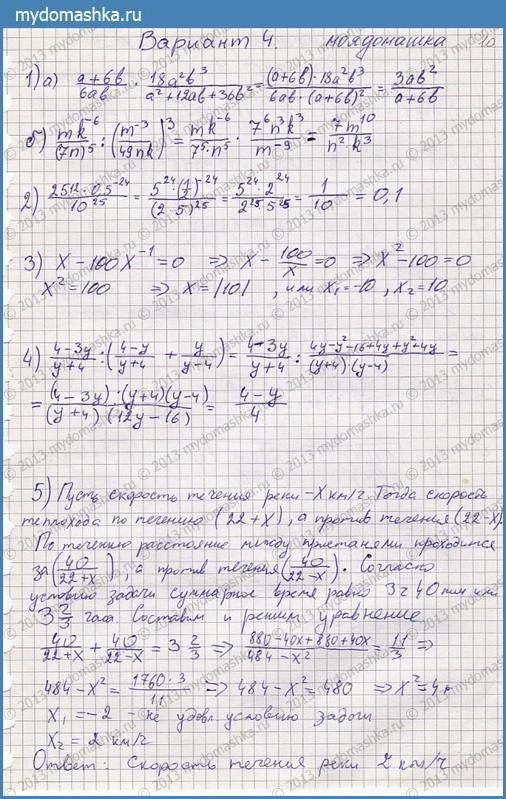 mydomashka.ru
Вариант 4. моядомашка
1) а) (a+6b)/(6ab) · (18a²b³)/(a²+12ab+36b²) = ((a+6b)·18a²b³)/(6ab·(a+6b)²) = (3ab²)/(a+6b)
б) (mk⁻⁶)/((7n)⁵) : ((m⁻³)/(49nk))³ = (mk⁻⁶)/(7⁵·n⁵) · (7⁶n³k³)/(m⁻⁹) = (7m¹⁰)/(n²·k³)
2) (25¹²·0,5⁻²⁴)/(10²⁵) = (5²⁴·(1/2)⁻²⁴)/((2·5)²⁵) = (5²⁴·2²⁴)/(2²⁵5²⁵) = 1/10 = 0,1
3) x − 100x⁻¹ = 0 ⇒ x − 100/x = 0 ⇒ x² − 100 = 0
x² = 100 ⇒ x = |10|, или x₁ = −10, x₂ = 10
4) (4−3y)/(y+4) : ((4−y)/(y+4) + y/(y−4)) = (4−3y)/(y+4) : (4y−y²−16+4y+y²+4y)/((y+4)·(y−4)) =
= ((4−3y)·(y+4)(y−4))/((y+4)·(12y−16)) = (4−y)/4
5) Пусть скорость течения реки – x км/ч. Тогда скорость
теплохода по течению (22+x), а против течения (22−x)
По течению расстояние между пристанями проходится
за (40/(22+x)), а против течения (40/(22−x)). Согласно
условию задачи суммарное время равно 3ч 40 мин или
3 2/3 часа Составим и решим уравнение
40/(22+x) + 40/(22−x) = 3 2/3 ⇒ (880−40x+880+40x)/(484−x²) = 11/3 ⇒
484−x² = (1760·3)/11 ⇒ 484−x² = 480 ⇒ x² = 4
x₁ = −2 – не удовл. условию задачи
x₂ = 2 км/ч
Ответ: Скорость течения реки 2 км/ч
© 2013 mydomashka.ru